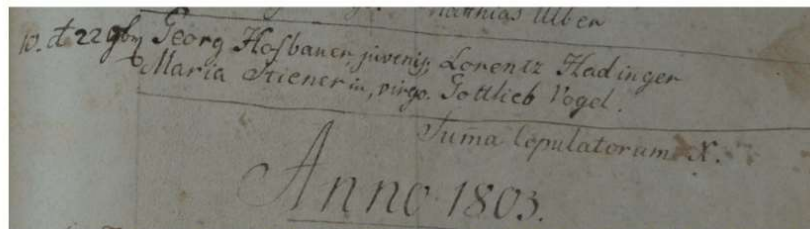 Matthias Alber
10. d 22 9br Georg Hofbauer, juvenis, Lorentz Hadinger
Maria Stienerin, virgo. Gottlieb Vogel.
Suma Copulatorum X.
Anno 1803.